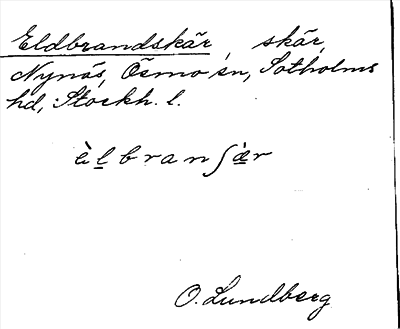 Eldbrandskär, skär,
Nynäs, Ösmo sn, Sotholms
hd, Stockh. l.
èl̲branʃæ̲̀r
O. Lundberg